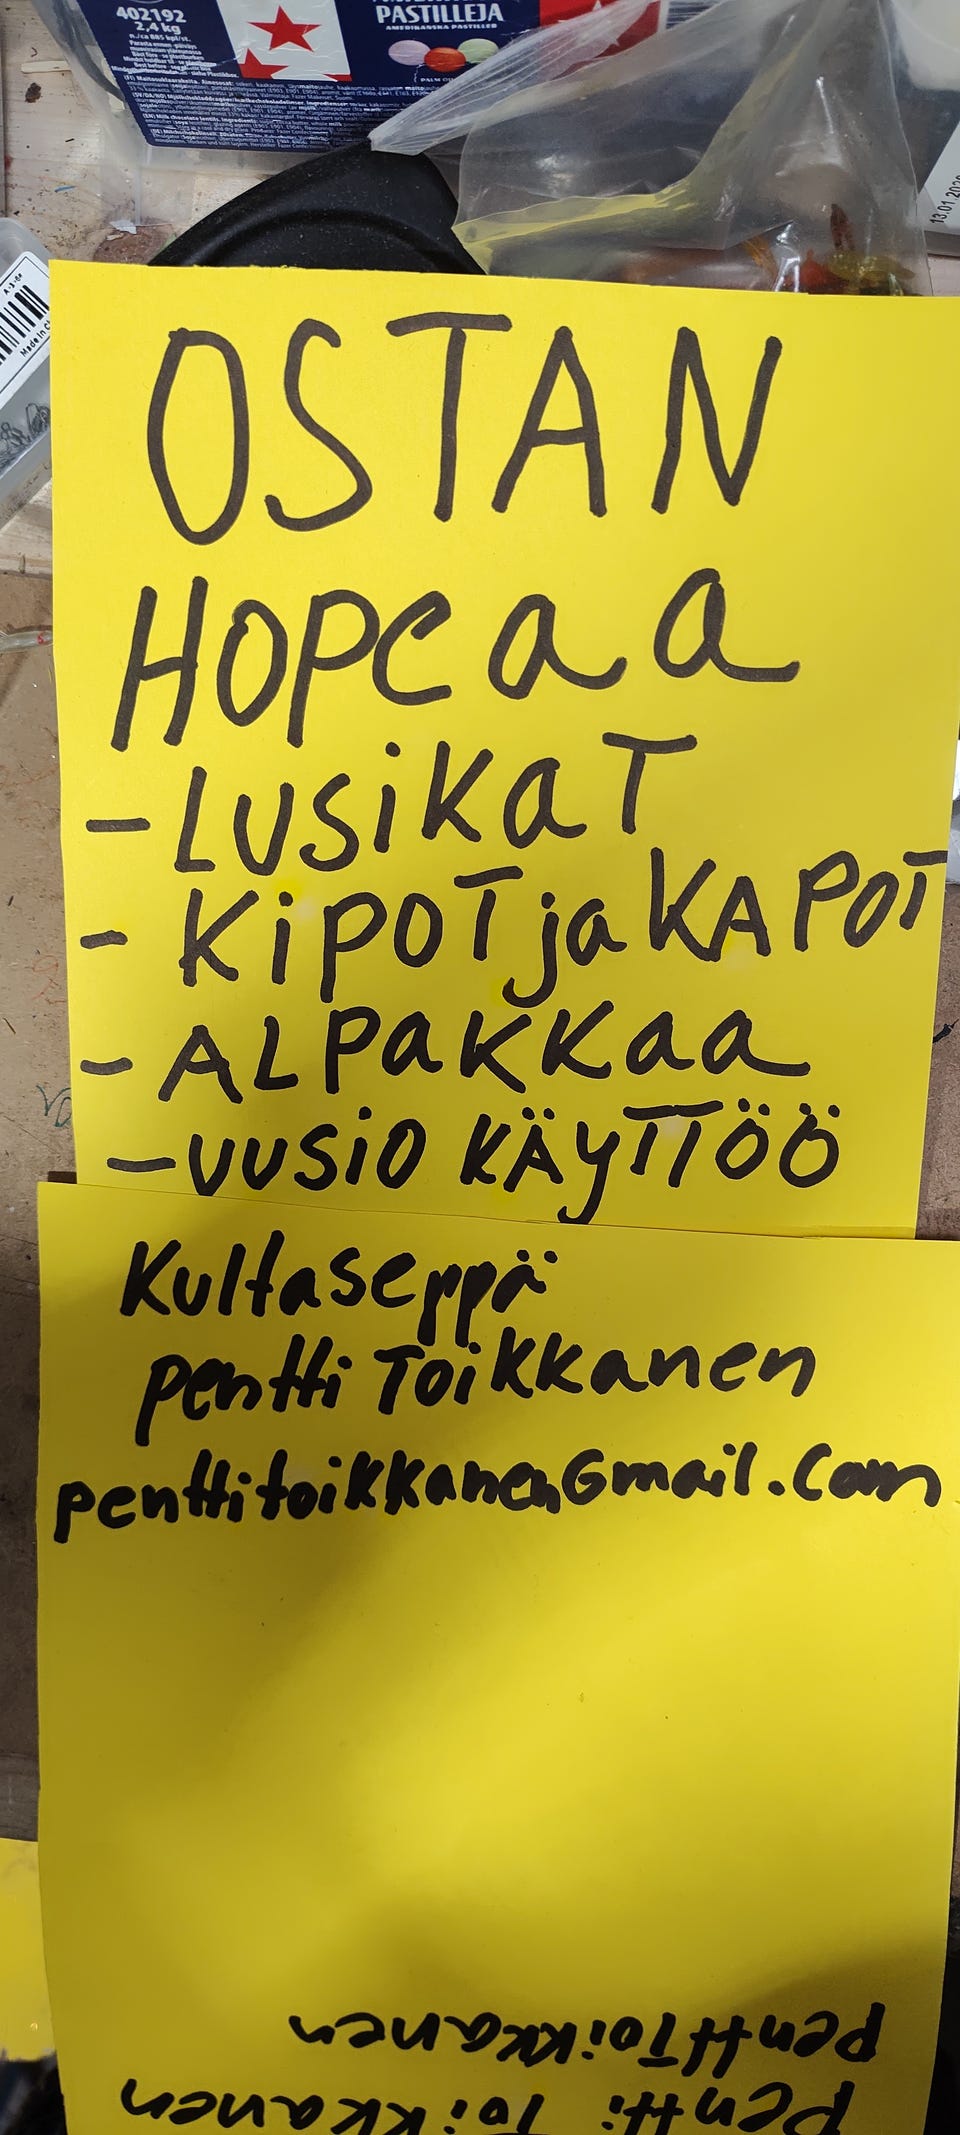 402192
2,4 kg
n./ca 885 kpl/st.
PASTILLEJA
AMERIKANSKA PASTILLER
13.01
Made in
OSTAN
HOPeaa
- LUSiKaT
- KiPOT ja KAPOT
- ALPaKKaa
- UUSIO KÄyTTÖÖ
Kultaseppä
pentti Toikkanen
penttitoikkanenGmail.Com
penttToikkanen
pentti Toikkanen